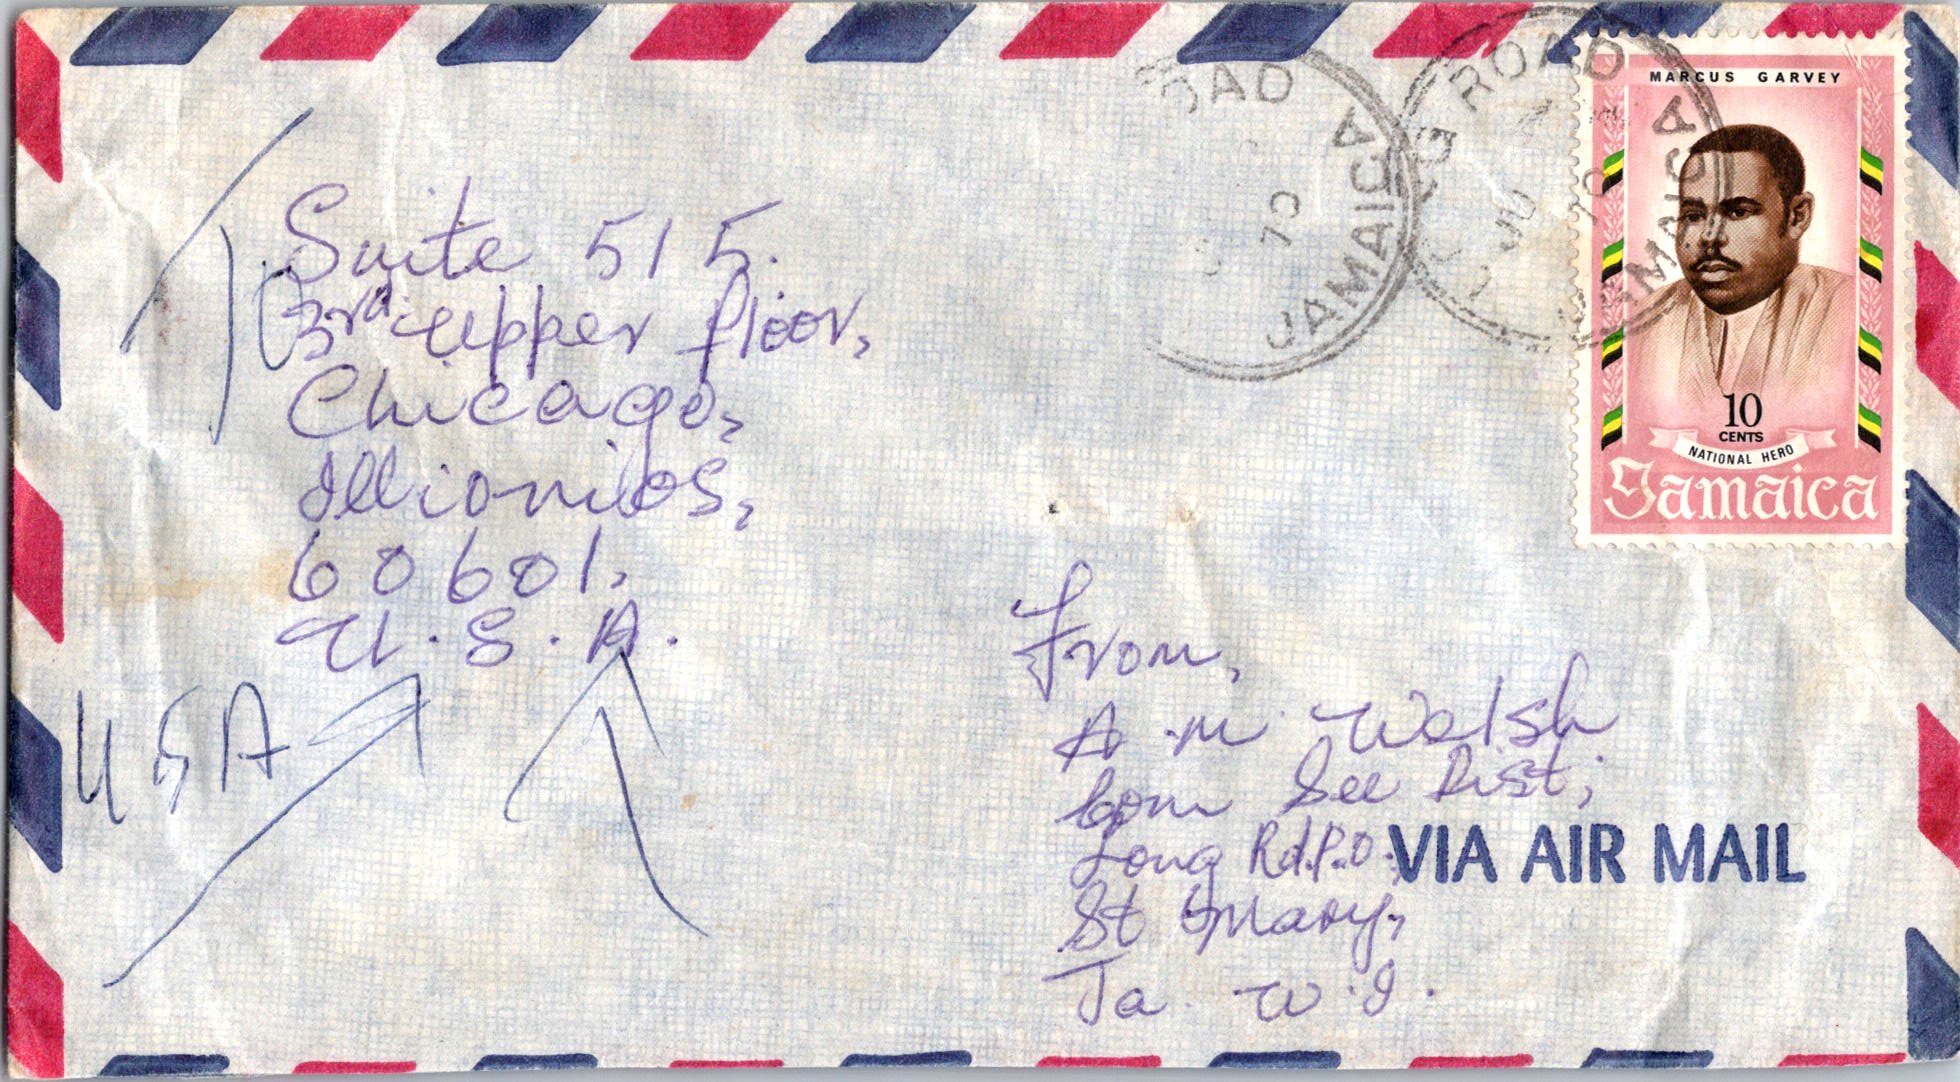 To
Suite 515.
3rd upper floor,
Chicago,
Illionios,
60601,
U.S.A.
USA
OAD
70
JAMAICA
G ROAD
JU
70
JAMAICA
MARCUS GARVEY
10
CENTS
NATIONAL HERO
Jamaica
From,
A.M. Walsh
Com See Dist;
Long Rd. P.O.
VIA AIR MAIL
St Mary,
Ja. W.I.